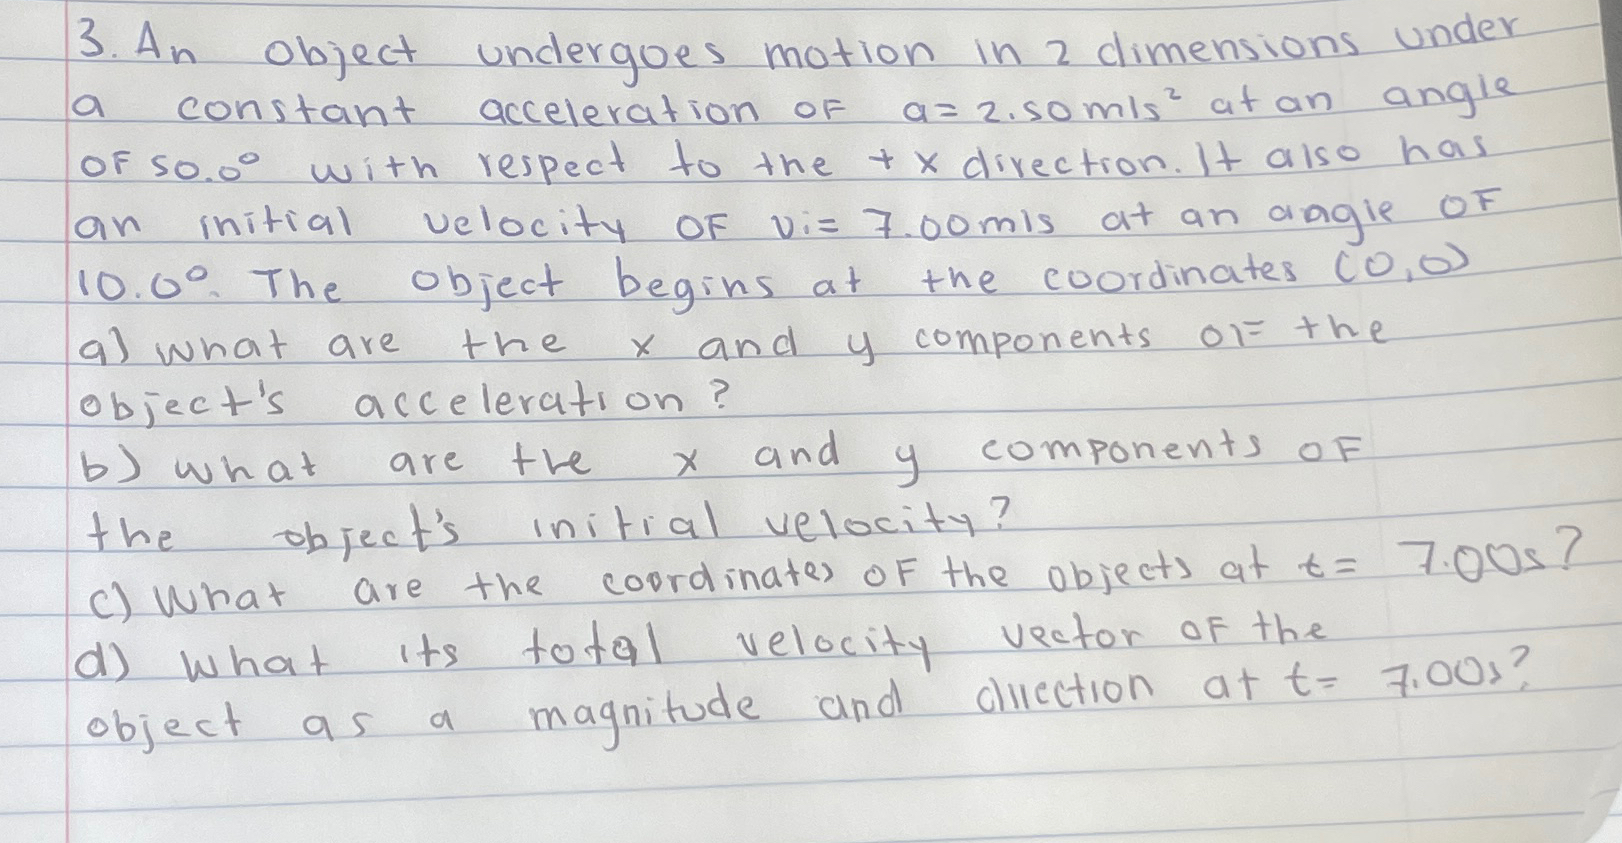 3. An object undergoes motion in 2 dimensions under
a constant acceleration OF a= 2.50m/s² at an angle
OF 50.0° with respect to the + x direction. It also has
an initial velocity OF vi= 7.00m/s at an angle OF
10.0°. The object begins at the coordinates (0,0)
a) what are the x and y components OF the
object's acceleration?
b) what are the x and y components OF
the object's initial velocity?
c) What are the coordinates OF the objects at t= 7.00s?
d) what its total velocity vector OF the
object as a magnitude and direction at t= 7.00s?